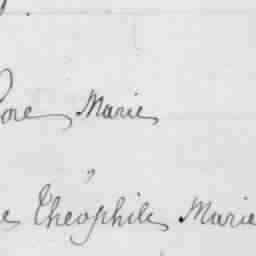 Marie
"
e Théophile Marie